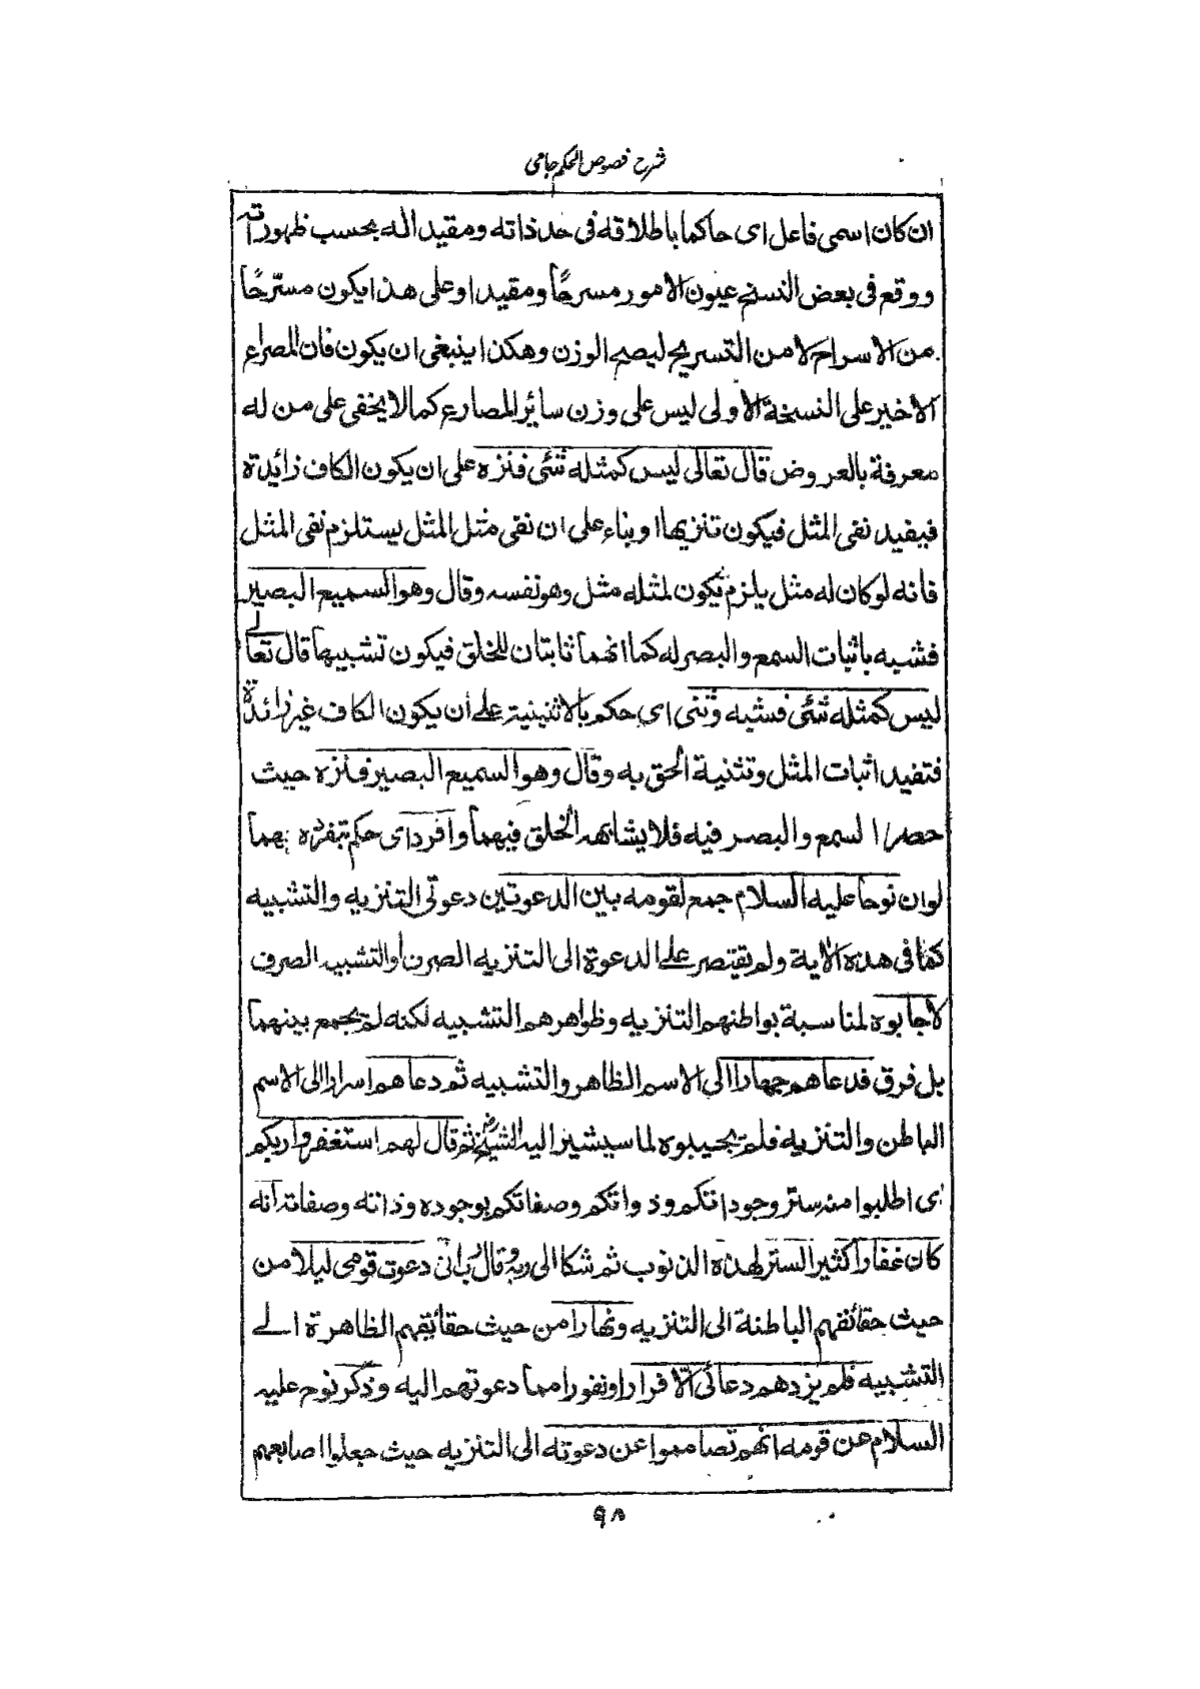 شرح فصوص الحكم جامى
ان كان اسمى فاعل اى حاكما باطلاقه فى حد ذاته ومقيدا له بحسب ظهوراته
ووقع فى بعض النسخ عيون الامور مسرحًا ومقيدا وعلى هذا يكون مسرّحًا
من الاسراح لا من التسريح ليصح الوزن وهكذا ينبغى ان يكون فان المصراع
الاخير على النسخة الاولى ليس على وزن سائر المصاريع كما لا يخفى على من له
معرفة بالعروض قال تعالى ليس كمثله شئى فنزه على ان يكون الكاف زائدة
فيفيد نفى المثل فيكون تنزيها او بناء على ان نفى مثل المثل يستلزم نفى المثل
فانه لو كان له مثل يلزم يكون لمثله مثل وهو نفسه وقال وهو السميع البصير
فشبه باثبات السمع والبصر له كما انهما ثابتان للخلق فيكون تشبيها قال تعالى
ليس كمثله شئى فشبه وثنى اى حكم بالاثنينية على أن يكون الكاف غير زائدة
فتفيد اثبات المثل وتثنية الحق به وقال وهو السميع البصير فنزه حيث
حصر السمع والبصر فيه فلا يشابهه الخلق فيهما وافرد اى حكم بتفرده بهما
لو ان نوحا عليه السلام جمع لقومه بين الدعوتين دعوتى التنزيه والتشبيه
كما فى هذه الآية ولم يقتصر على الدعوة الى التنزيه الصرف أو التشبيه الصرف
لاجابوه لمناسبة بواطنهم التنزيه وظواهرهم التشبيه لكنه لم يجمع بينهما
بل فرق فدعاهم جهارا الى الاسم الظاهر والتشبيه ثم دعاهم اسرارا الى الاسم
الباطن والتنزيه فلم يجيبوه لما سيشير اليه الشيخ ثم قال لهم استغفروا ربكم
اى اطلبوا منه ستر وجوداتكم وذواتكم وصفاتكم بوجوده وذاته وصفاته انه
كان غفارا كثير الستر لهذه الذنوب ثم شكا الى ربه وقال رب انى دعوت قومى ليلا من
حيث حقائقهم الباطنة الى التنزيه ونهارا من حيث حقائقهم الظاهرة الى
التشبيه فلم يزدهم دعائى الّا فرارا ونفورا مما دعوتهم اليه وذكر نوح عليه
السلام عن قومه انهم تصامموا عن دعوته الى التنزيه حيث جعلوا اصابعهم
٩٨